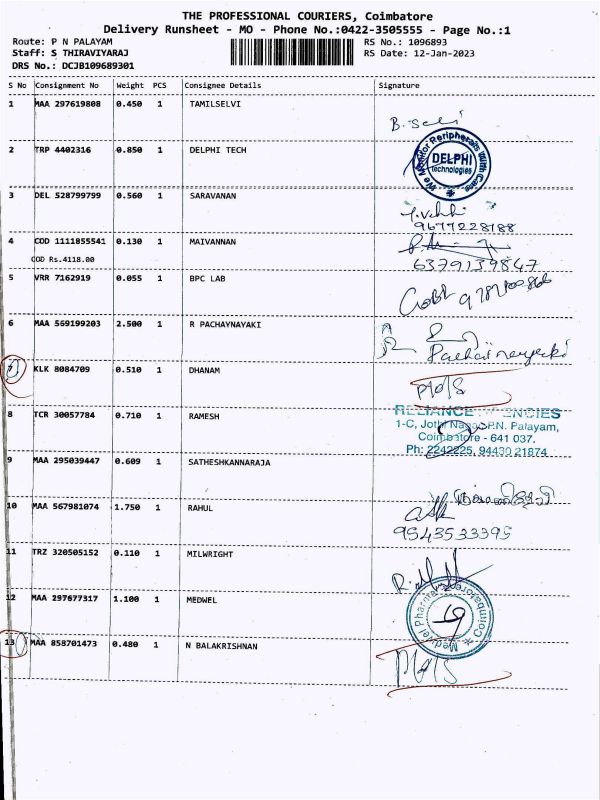 THE PROFESSIONAL COURIERS, Coimbatore
Delivery Runsheet - MO - Phone No.:0422-3505555 - Page No.:1
Route: P N PALAYAM
RS No.: 1096893
Staff: S THIRAVIYARAJ
RS Date: 12-Jan-2023
DRS No.: DCJB109689301
S No Consignment No Weight PCS Consignee Details Signature
1 MAA 297619808 0.450 1 TAMILSELVI
2 TRP 4402316 0.850 1 DELPHI TECH
We Monitor Peripherals With Care
DELPHI
technologies
3 DEL 528799799 0.560 1 SARAVANAN
9677228188
4 COD 1111855541 0.130 1 MAIVANNAN
COD Rs.4118.00
6379139847
5 VRR 7162919 0.055 1 BPC LAB
6 MAA 569199203 2.500 1 R PACHAYNAYAKI
7 KLK 8084709 0.510 1 DHANAM
8 TCR 30057784 0.710 1 RAMESH
RELIANCE AGENCIES
1-C, Jothi Nagar P.N. Palayam,
Coimbatore - 641 037.
Ph: 2242225, 94430 21874
9 MAA 295039447 0.609 1 SATHESHKANNARAJA
10 MAA 567981074 1.750 1 RAHUL
9543533395
11 TRZ 320505152 0.110 1 MILWRIGHT
12 MAA 297677317 1.100 1 MEDWEL
13 MAA 858701473 0.480 1 N BALAKRISHNAN